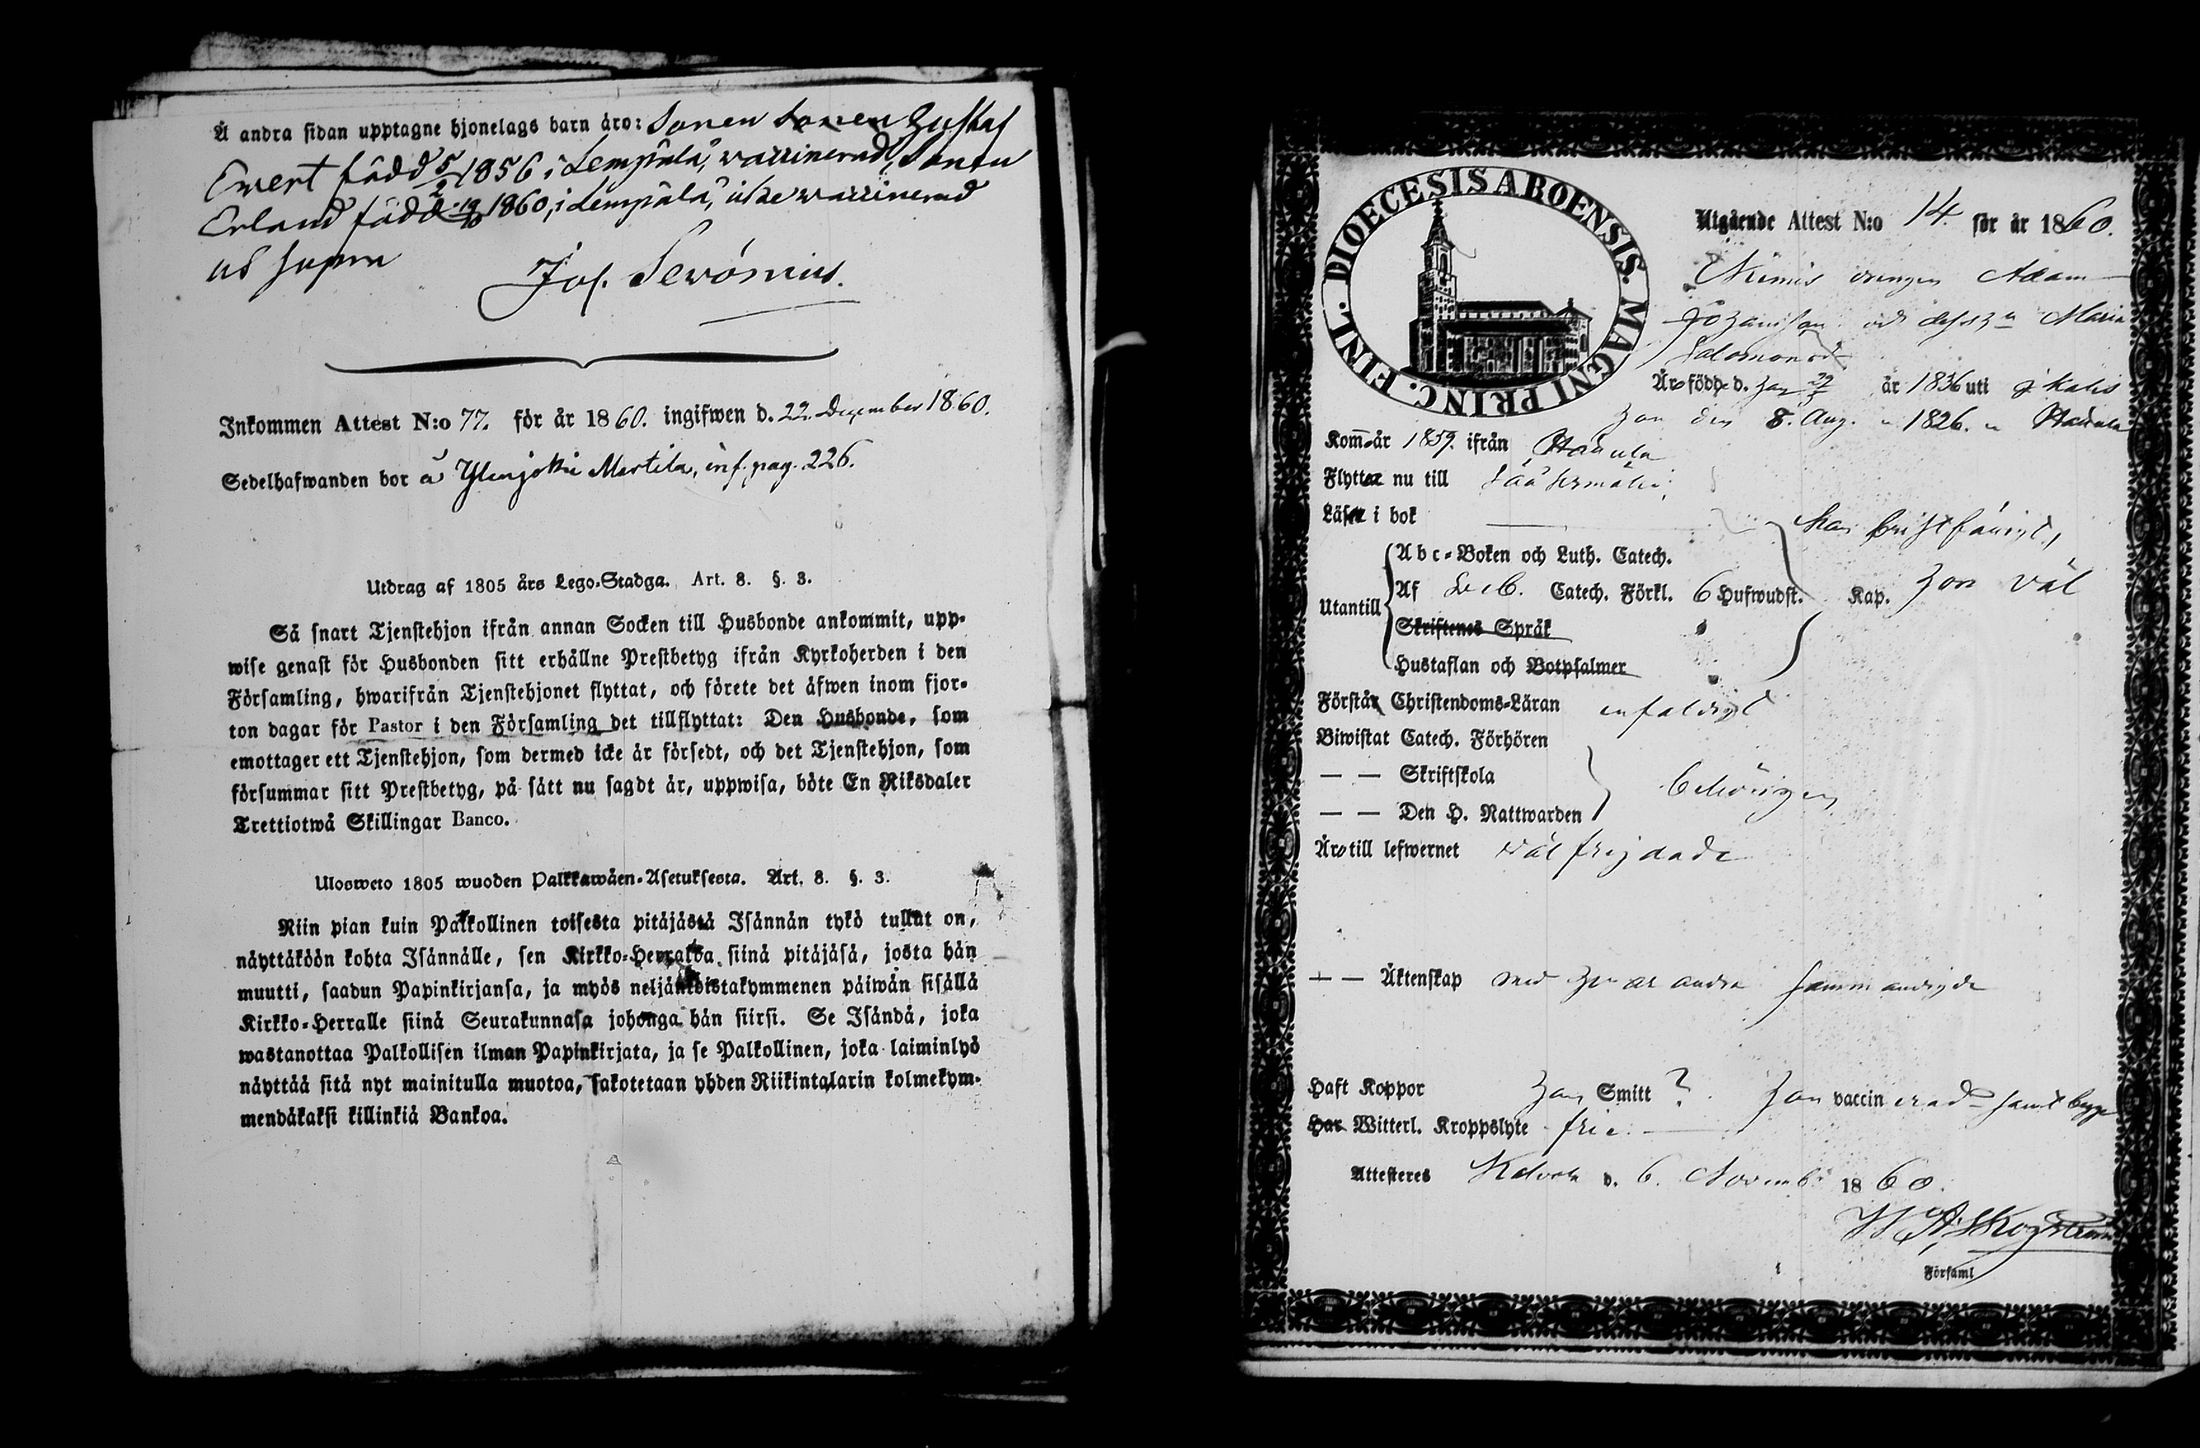 Å andra sidan upptagne hjonelags barn äro: Sonen Sonen Gustaf
Ewert född 5/2 1856 i Lempälä, waccinerad, Sonen
Erland född 1860, i Lempälä, icke waccinerad
ut supra
Jos. Serónius.
Inkommen Attest N:o 77. för år 1860. ingifwen d. 22 December 1860.
Sedelhafwanden bor å Ylenjoki Martila, inf. pag. 226.
Utdrag af 1805 års Lego-Stadga. Art. 8. §. 3.
Så snart Tjenstehjon ifrån annan Socken till Husbonde ankommit, upp-
wise genast för Husbonden sitt erhållne Prestbetyg ifrån Kyrkoherden i den
Församling, hwarifrån Tjenstehjonet flyttat, och förete det äfwen inom fjor-
ton dagar för Pastor i den Församling det tillflyttat: Den Husbonde, som
emottager ett Tjenstehjon, som dermed icke är försedt, och det Tjenstehjon, som
försummar sitt Prestbetyg, på sätt nu sagdt är, uppwisa, böte En Riksdaler
Trettiotwå Skillingar Banco.
Ulosweto 1805 wuoden Palkkawäen-Asetuksesta. Art. 8. §. 3.
Niin pian kuin Palkollinen toisesta pitäjästä Isännän tykö tullut on,
näyttäköön kohta Isännälle, sen Kirkko-Herralda siinä pitäjäsä, josta hän
muutti, saadun Papinkirjansa, ja myös neljäntoistakymmenen päiwän sisällä
Kirkko-Herralle siinä Seurakunnasa johonga hän siirsi. Se Isändä, joka
wastanottaa Palkollisen ilman Papinkirjata, ja se Palkollinen, joka laiminlyö
näyttää sitä nyt mainitulla muotoa, sakotetaan yhden Riikintalarin kolmekym-
mendäkaksi killinkiä Bankoa.
DIOECESIS ABOENSIS. MAGNI PRINC. FINL.
Utgående Attest N:o 14. för år 1860.
drengen Adam
Johansson och dess h:u Maria
Salomonsdr
Äro födde d. han 29 år 1836 uti
hon den 8. Aug. " 1826. "
Kom år 1859. ifrån
Flyttar nu till Sääksmäki
Läser i bok
han försvarligt,
hon väl
Utantill
Abc-Boken och Luth. Catech.
Af Catech. Förkl. 6 Hufwudst. Kap.
Skriftenes Språk
Hustaflan och Botpsalmer
Förstår Christendoms-Läran enfaldigt
Biwistat Catech. Förhören
— — Skriftskola
— — Den H. Nattwarden
behörigen
Äro till lefwernet väl frejdade
— — Äktenskap med hvarandra sammanvigde
Haft Koppor han Smitt ? hon vaccinerad samt begge
Har Witterl. Kroppslyte frie.
Attesteres d. 6. Novemb. 1860.
Församl